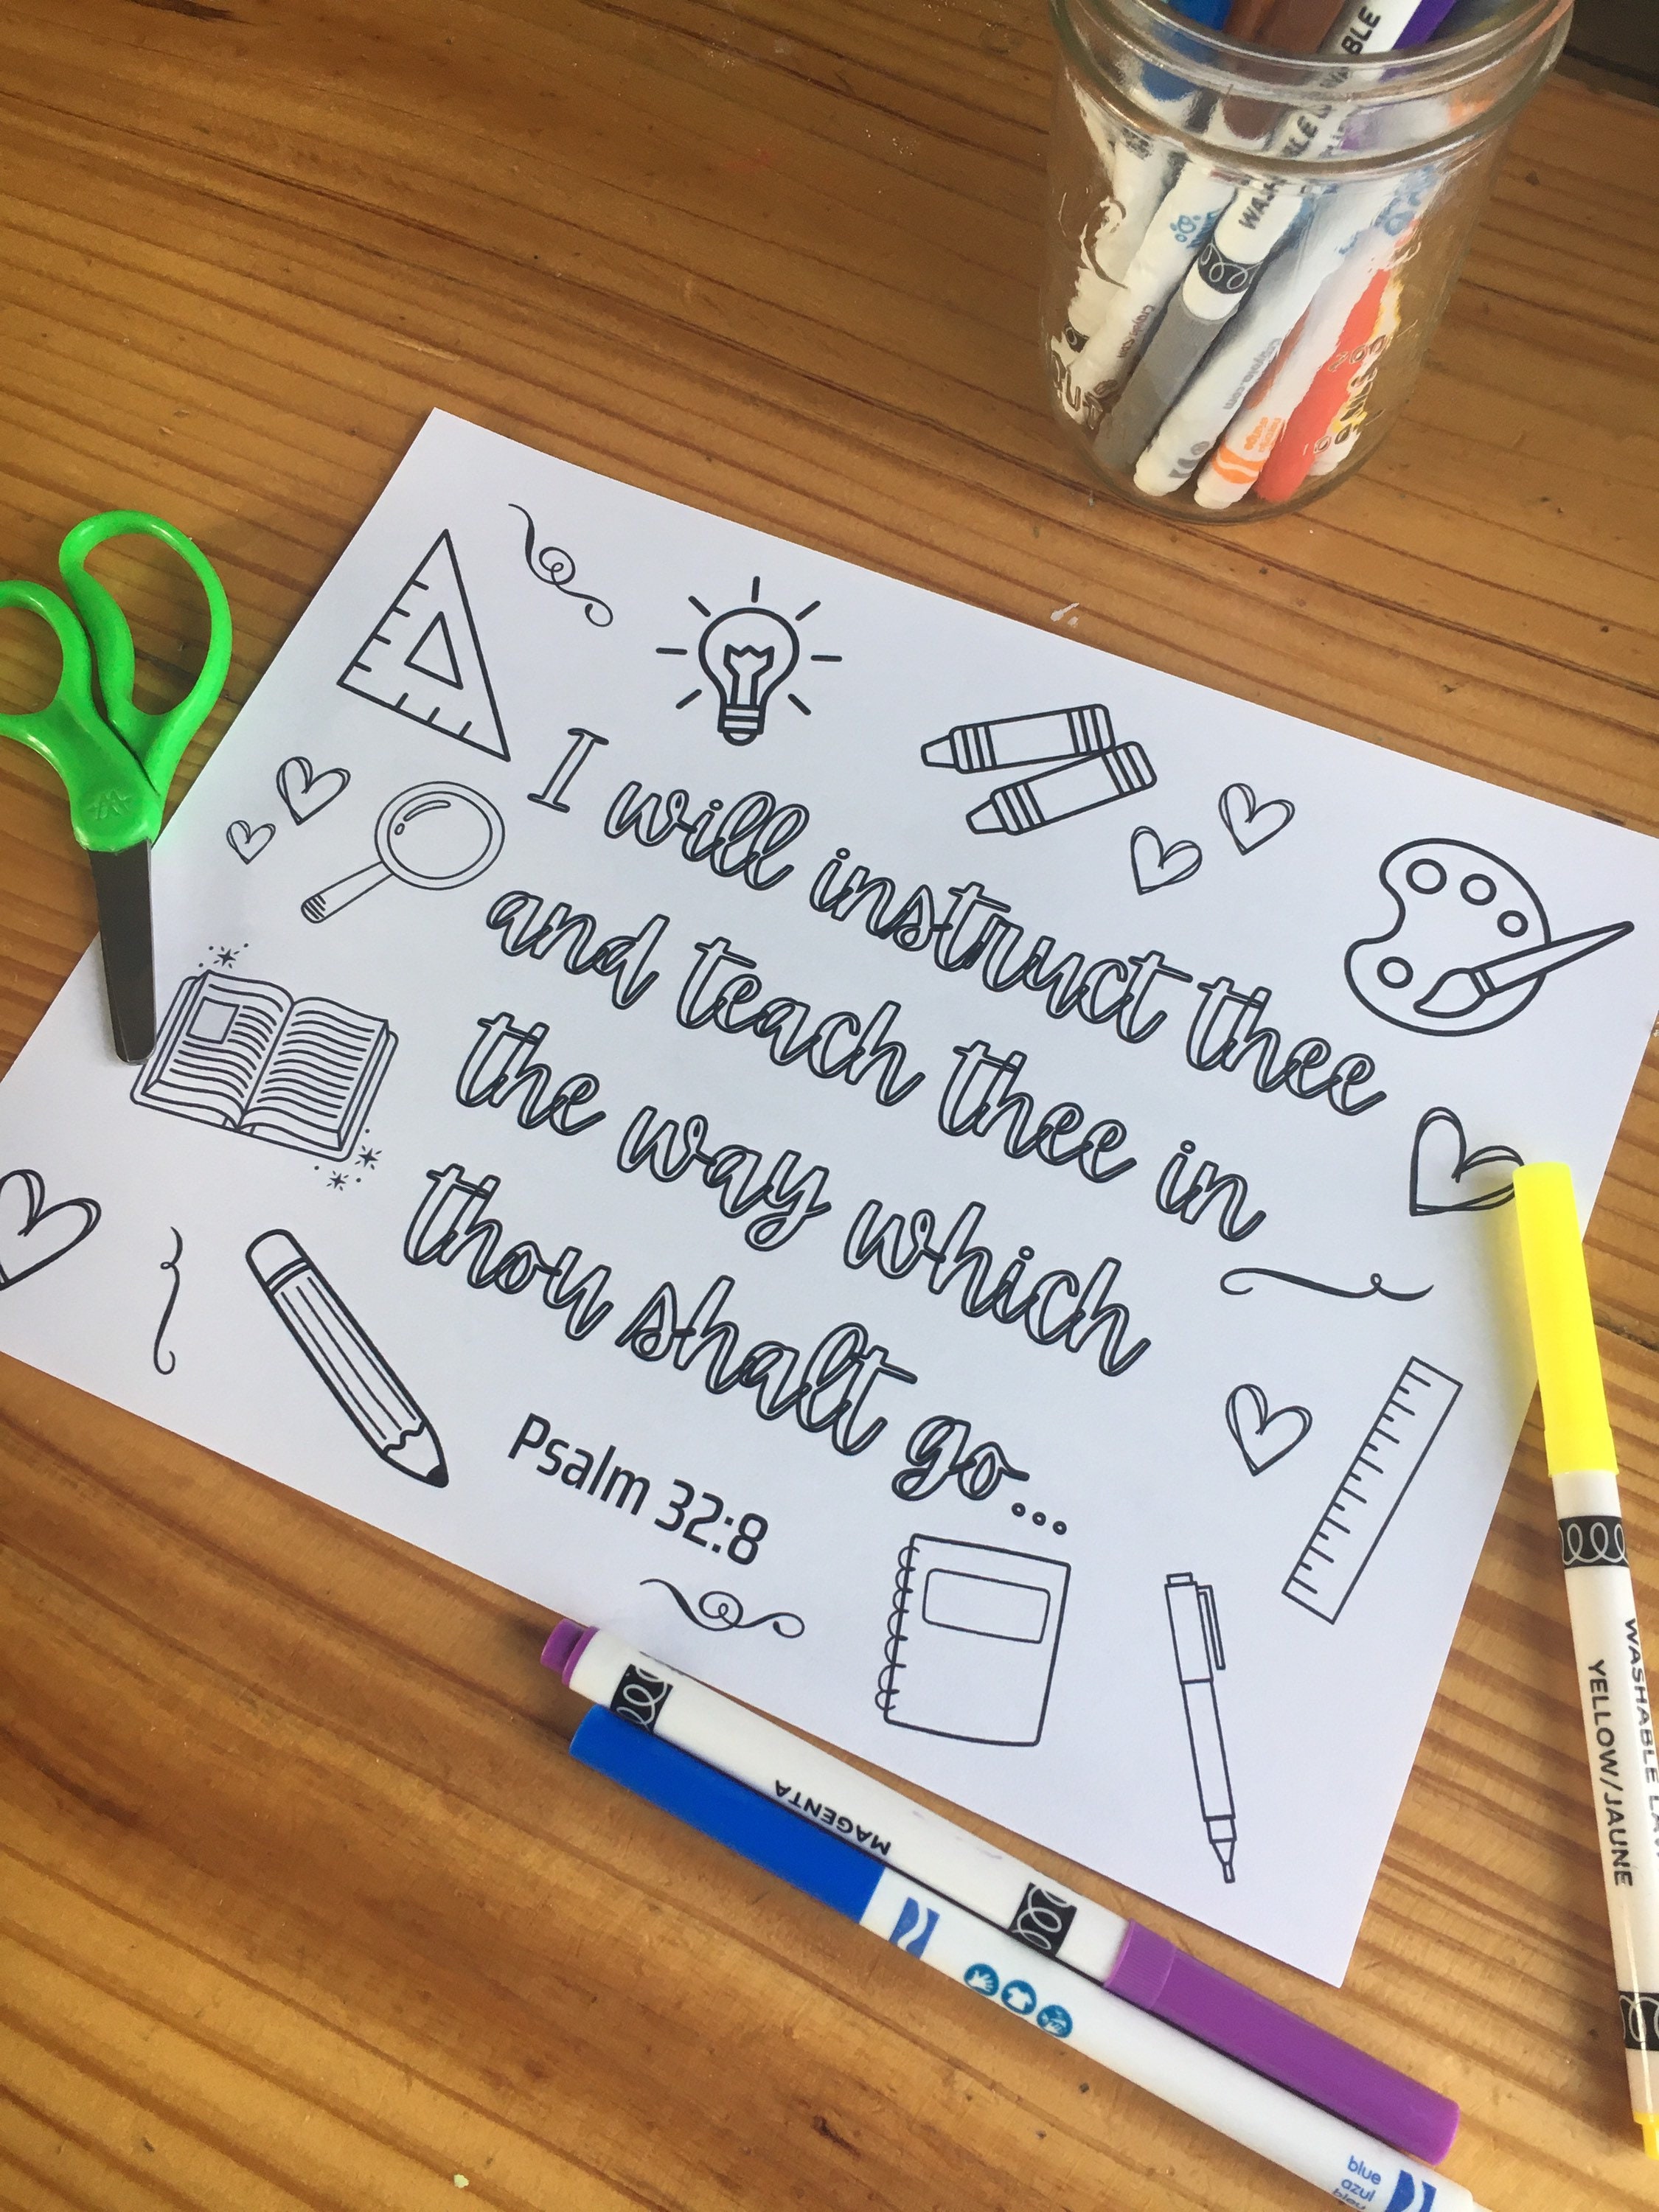 WASHABLE
I will instruct thee
and teach thee in
the way which
thou shalt go...
Psalm 32:8
MAGENTA
YELLOW/JAUNE
blue
azul
bleu